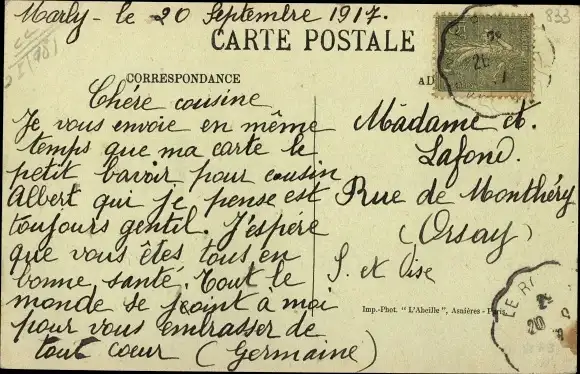 Marly - le 20 Septembre 1917.
833
CARTE POSTALE
CORRESPONDANCE
AD
Chére cousine
Je vous envoie en même
temps que ma carte le
petit bavoir pour cousin
Albert qui je pense est
toujours gentil. J'éspére
que vous êtes tous en
bonne santé. Tout le
monde se joint à moi
pour vous embrasser de
tout cœur (Germaine)
Madame A.
Lafond.
Rue de Monthéry
(Orsay)
S. et Oise
Imp.-Phot. "L'Abeille", Asnières - Paris
LE
20